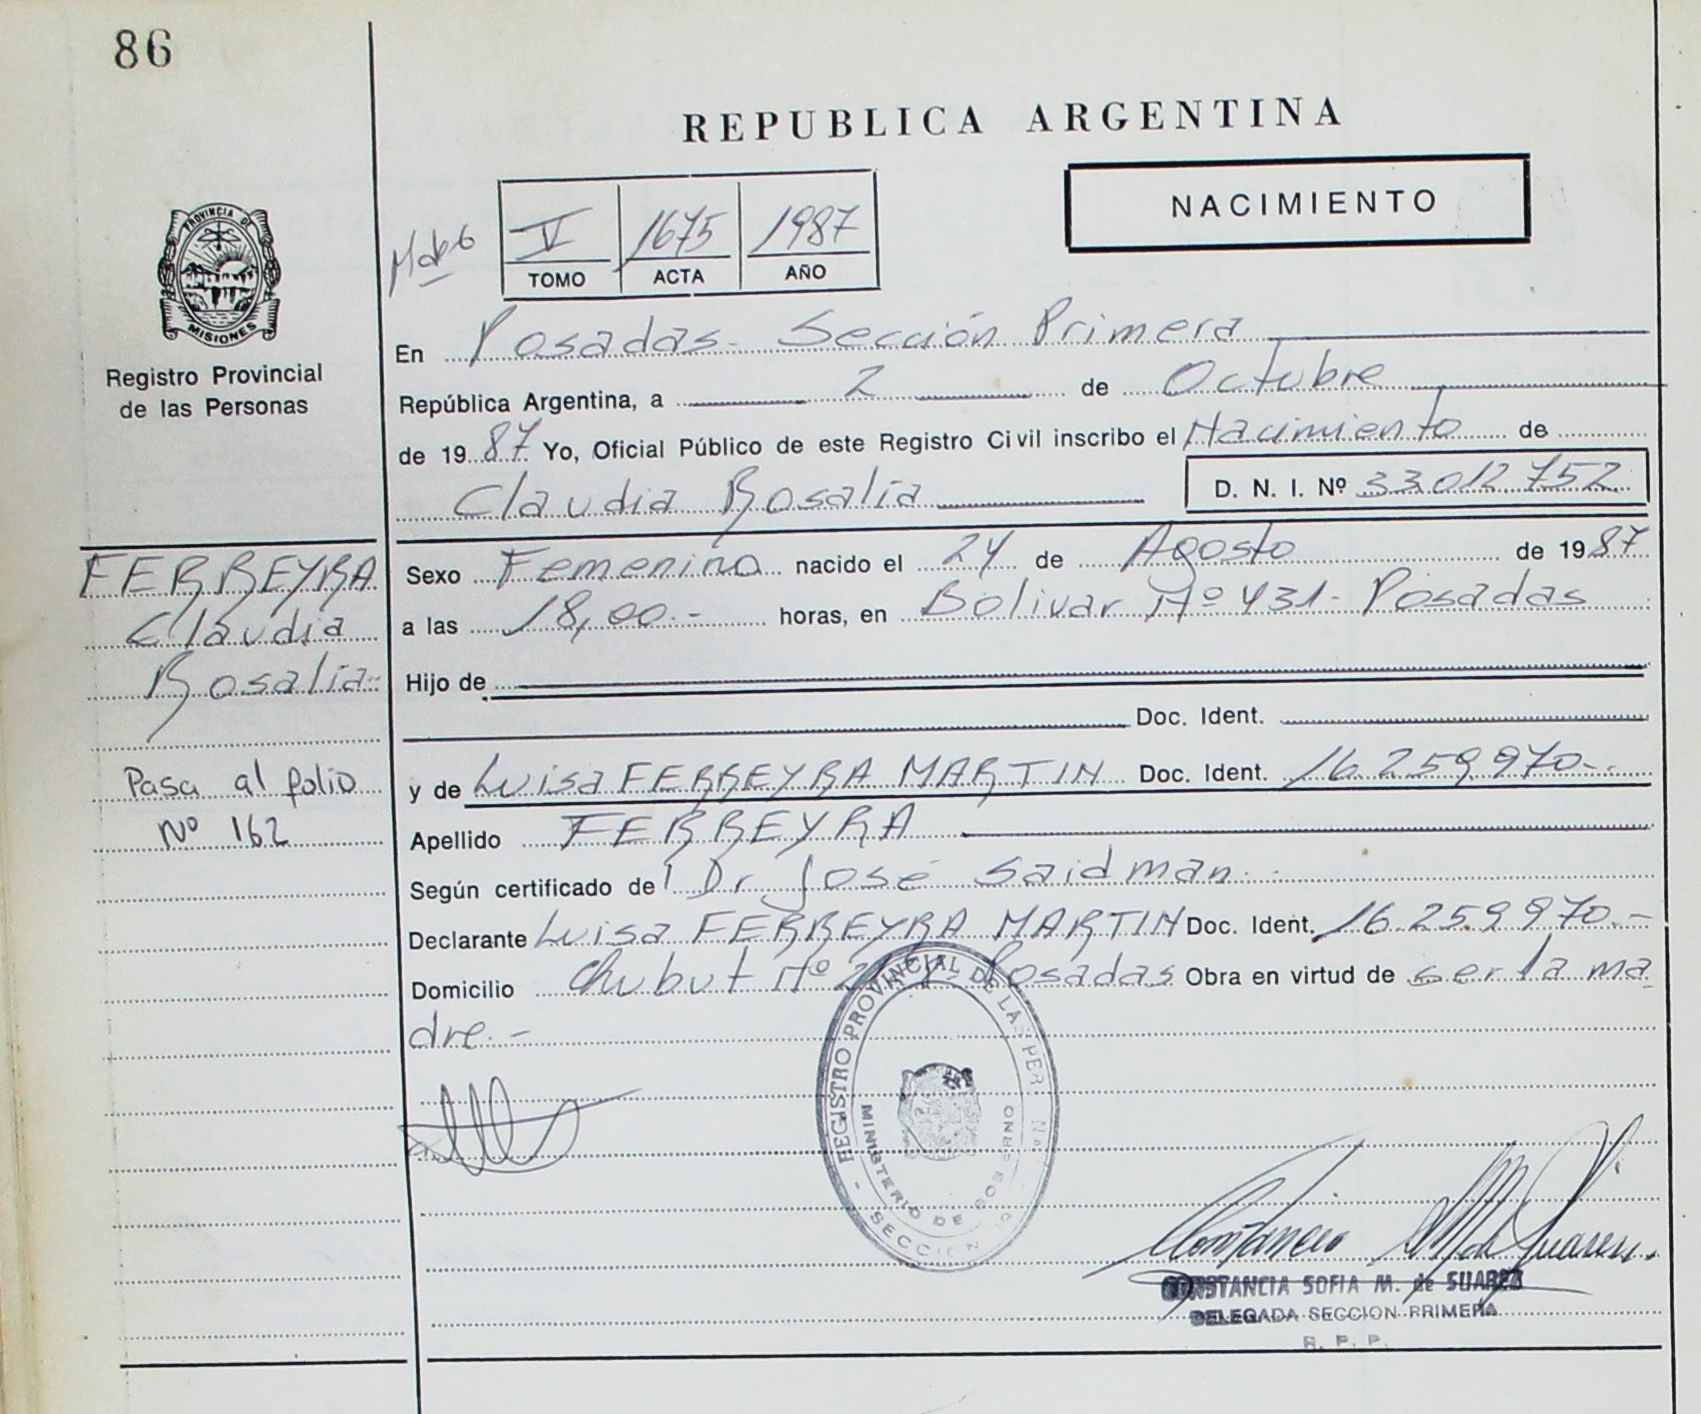 86
REPUBLICA ARGENTINA
NACIMIENTO
V 1675 1987
TOMO ACTA AÑO
PROVINCIA DE
MISIONES
Registro Provincial
de las Personas
En Posadas - Sección Primera
República Argentina, a 2 de Octubre
de 1987 Yo, Oficial Público de este Registro Civil inscribo el Nacimiento de
Claudia Rosalía D. N. I. Nº 33.012.752
FERREYRA
Claudia
Rosalía-
Pasa al folio
Nº 162
Sexo Femenino nacido el 24 de Agosto de 1987
a las 18,00.- horas, en Bolivar Nº 431- Posadas
Hijo de
Doc. Ident.
y de Luisa FERREYRA MARTIN Doc. Ident. 16.259.970.-
Apellido FERREYRA
Según certificado de Dr José Saidman.
Declarante Luisa FERREYRA MARTIN Doc. Ident. 16.259.970.-
Domicilio Chubut Nº Posadas Obra en virtud de ser la ma
dre.-
REGISTRO PROVINCIAL DE LAS PER
MINISTERIO DE GOBIERNO
- SECCION
CONSTANCIA SOFIA M. de SUAREZ
DELEGADA SECCION PRIMERA
R. P. P.